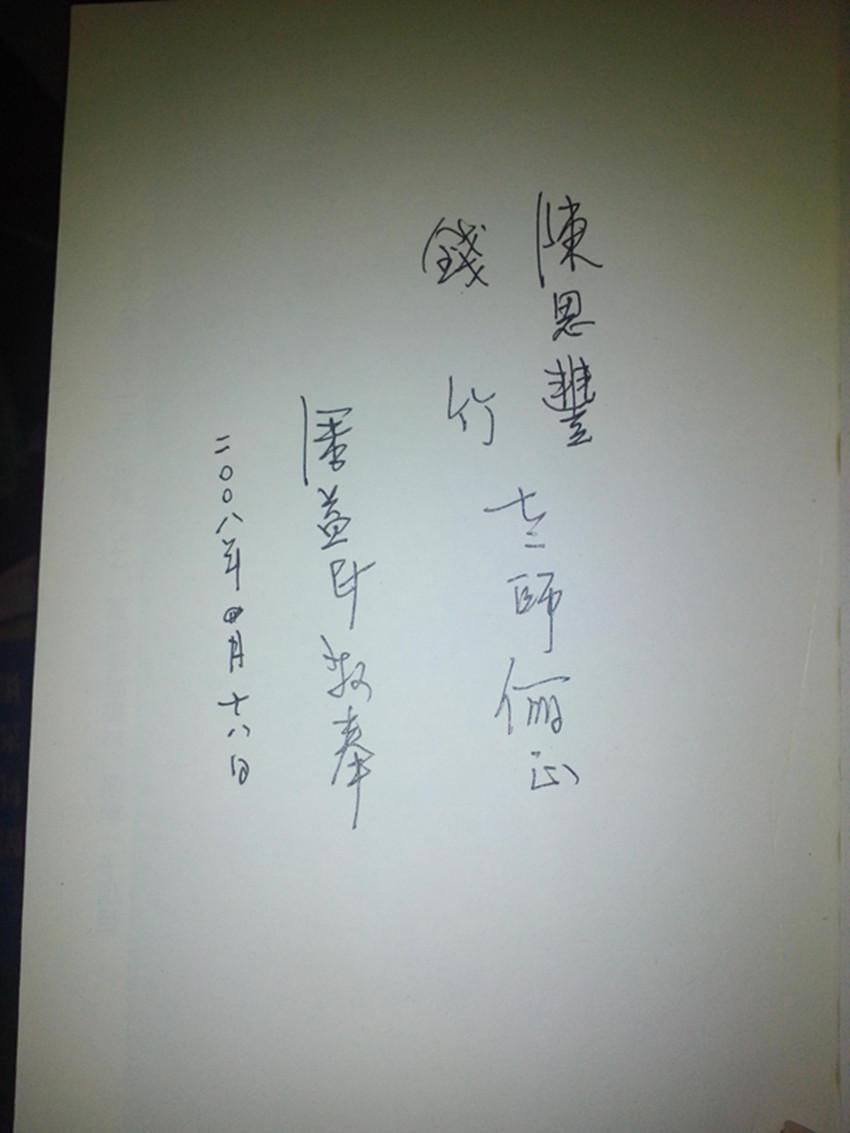 陳恩豐
錢行
老師儷正
潘益民敬奉
二〇〇八年四月十八日